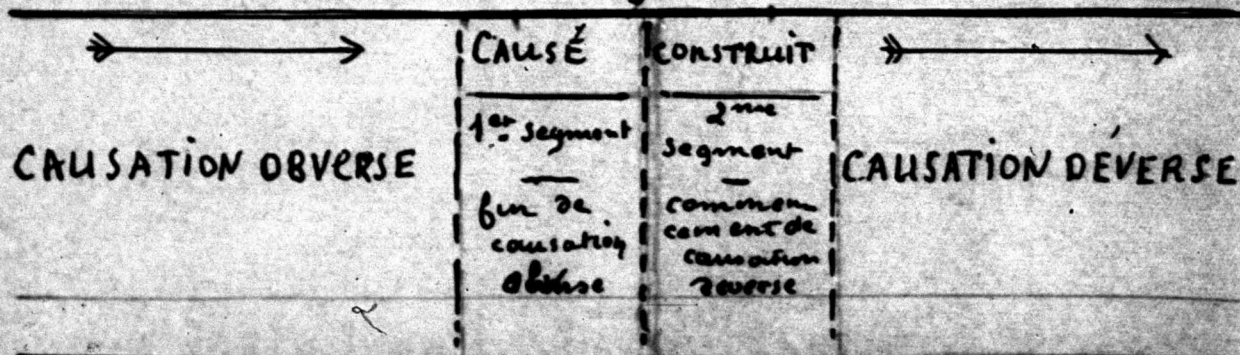 CAUSATION OBVERSE
CAUSÉ
1er segment
fin de
causation
obverse
CONSTRUIT
2me
segment
commen
cement de
causation
déverse
CAUSATION DÉVERSE